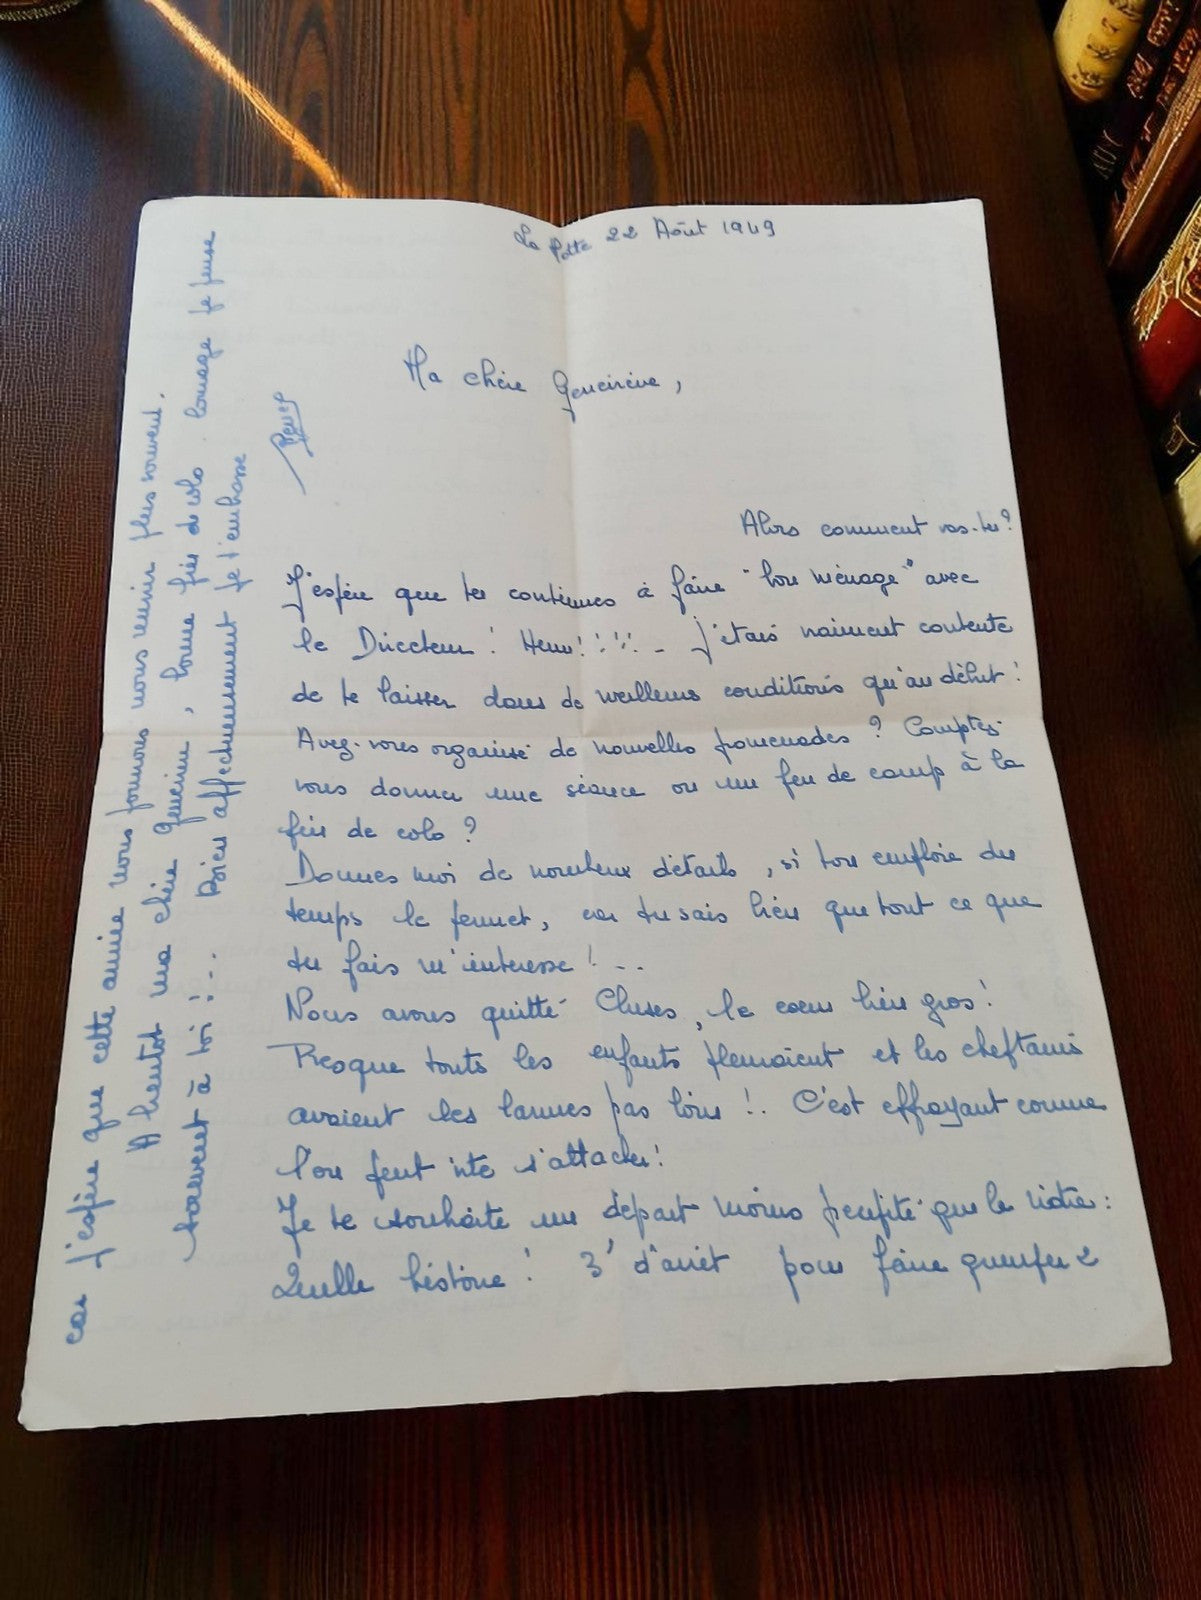 La Motte 22 Août 1949
Ma chère Geneviève,
Alors comment vas-tu?
J'espère que tu continues à faire "bon ménage" avec
le Directeur! Hum!!!!.. J'étais vraiment contente
de te laisser dans de meilleures conditions qu'au début!
Avez-vous organisé de nouvelles promenades? Comptez-
vous donner une séance ou un feu de camp à la
fin de colo?
Donnes moi de nombreux détails, si ton emploie du
temps le permet, car tu sais bien que tout ce que
tu fais m'interesse!...
Nous avons quitté Cluses, le coeur bien gros!
Presque touts les enfants pleuraient et les cheftaines
avaient les larmes pas loin!. C'est effrayant comme
l'on peut vite s'attacher!
Je te souhaite un départ moins precipité que le nôtre:
Quelle histoire! 3' d'arrêt pour faire grimper
car j'espère que cette année nous pourrons nous réunir plus souvent.
A bientot ma chère Geneviève, bonne fin de colo. Courage je pense
souvent à toi!... Bien affectueusement je t'embrasse